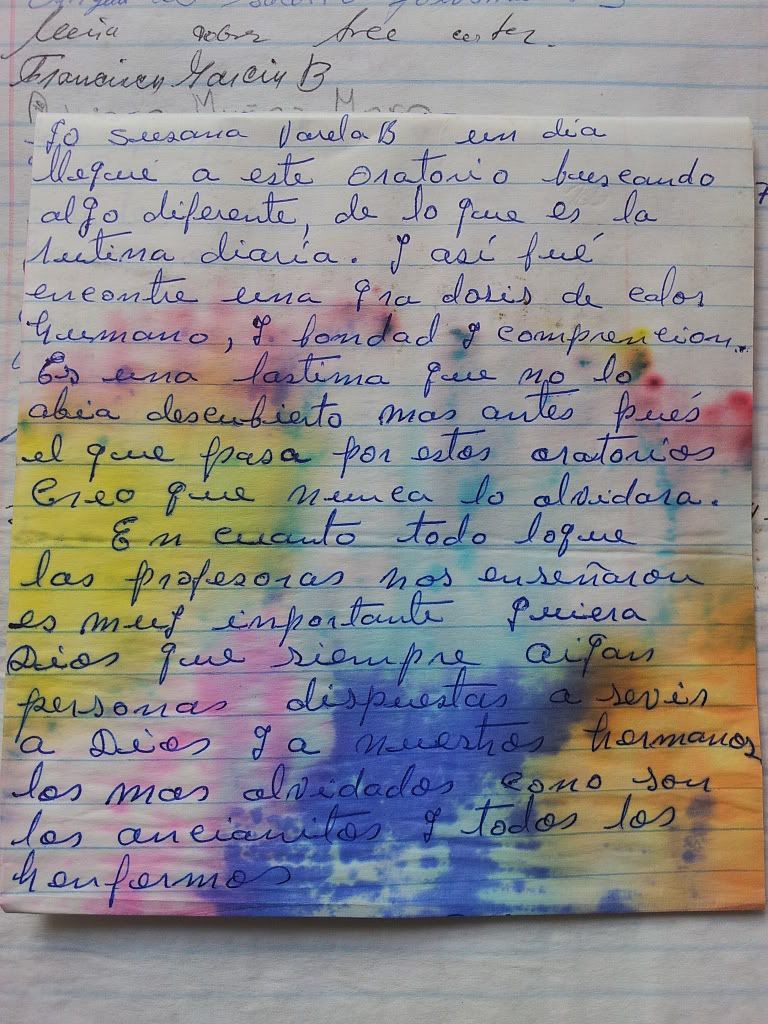 Francisca Garcia B
Yo susana Varela B un dia
llegué a este oratorio buscando
algo diferente, de lo que es la
rutina diaria. y así fué
encontre una gra dosis de calor
humano, y bondad y comprencion..
Es una lastima que no lo
abia descubierto mas antes pués
el que pasa por estos oratorios
Creo que nunca lo olvidara.
En cuanto todo loque
las profesoras nos enseñaron
es muy importante quiera
Dios que siempre aigan
personas dispuestas a sevir
a Dios y a nuestros hermanos
los mas olvidados como son
los ancianitos y todos los
henfermos